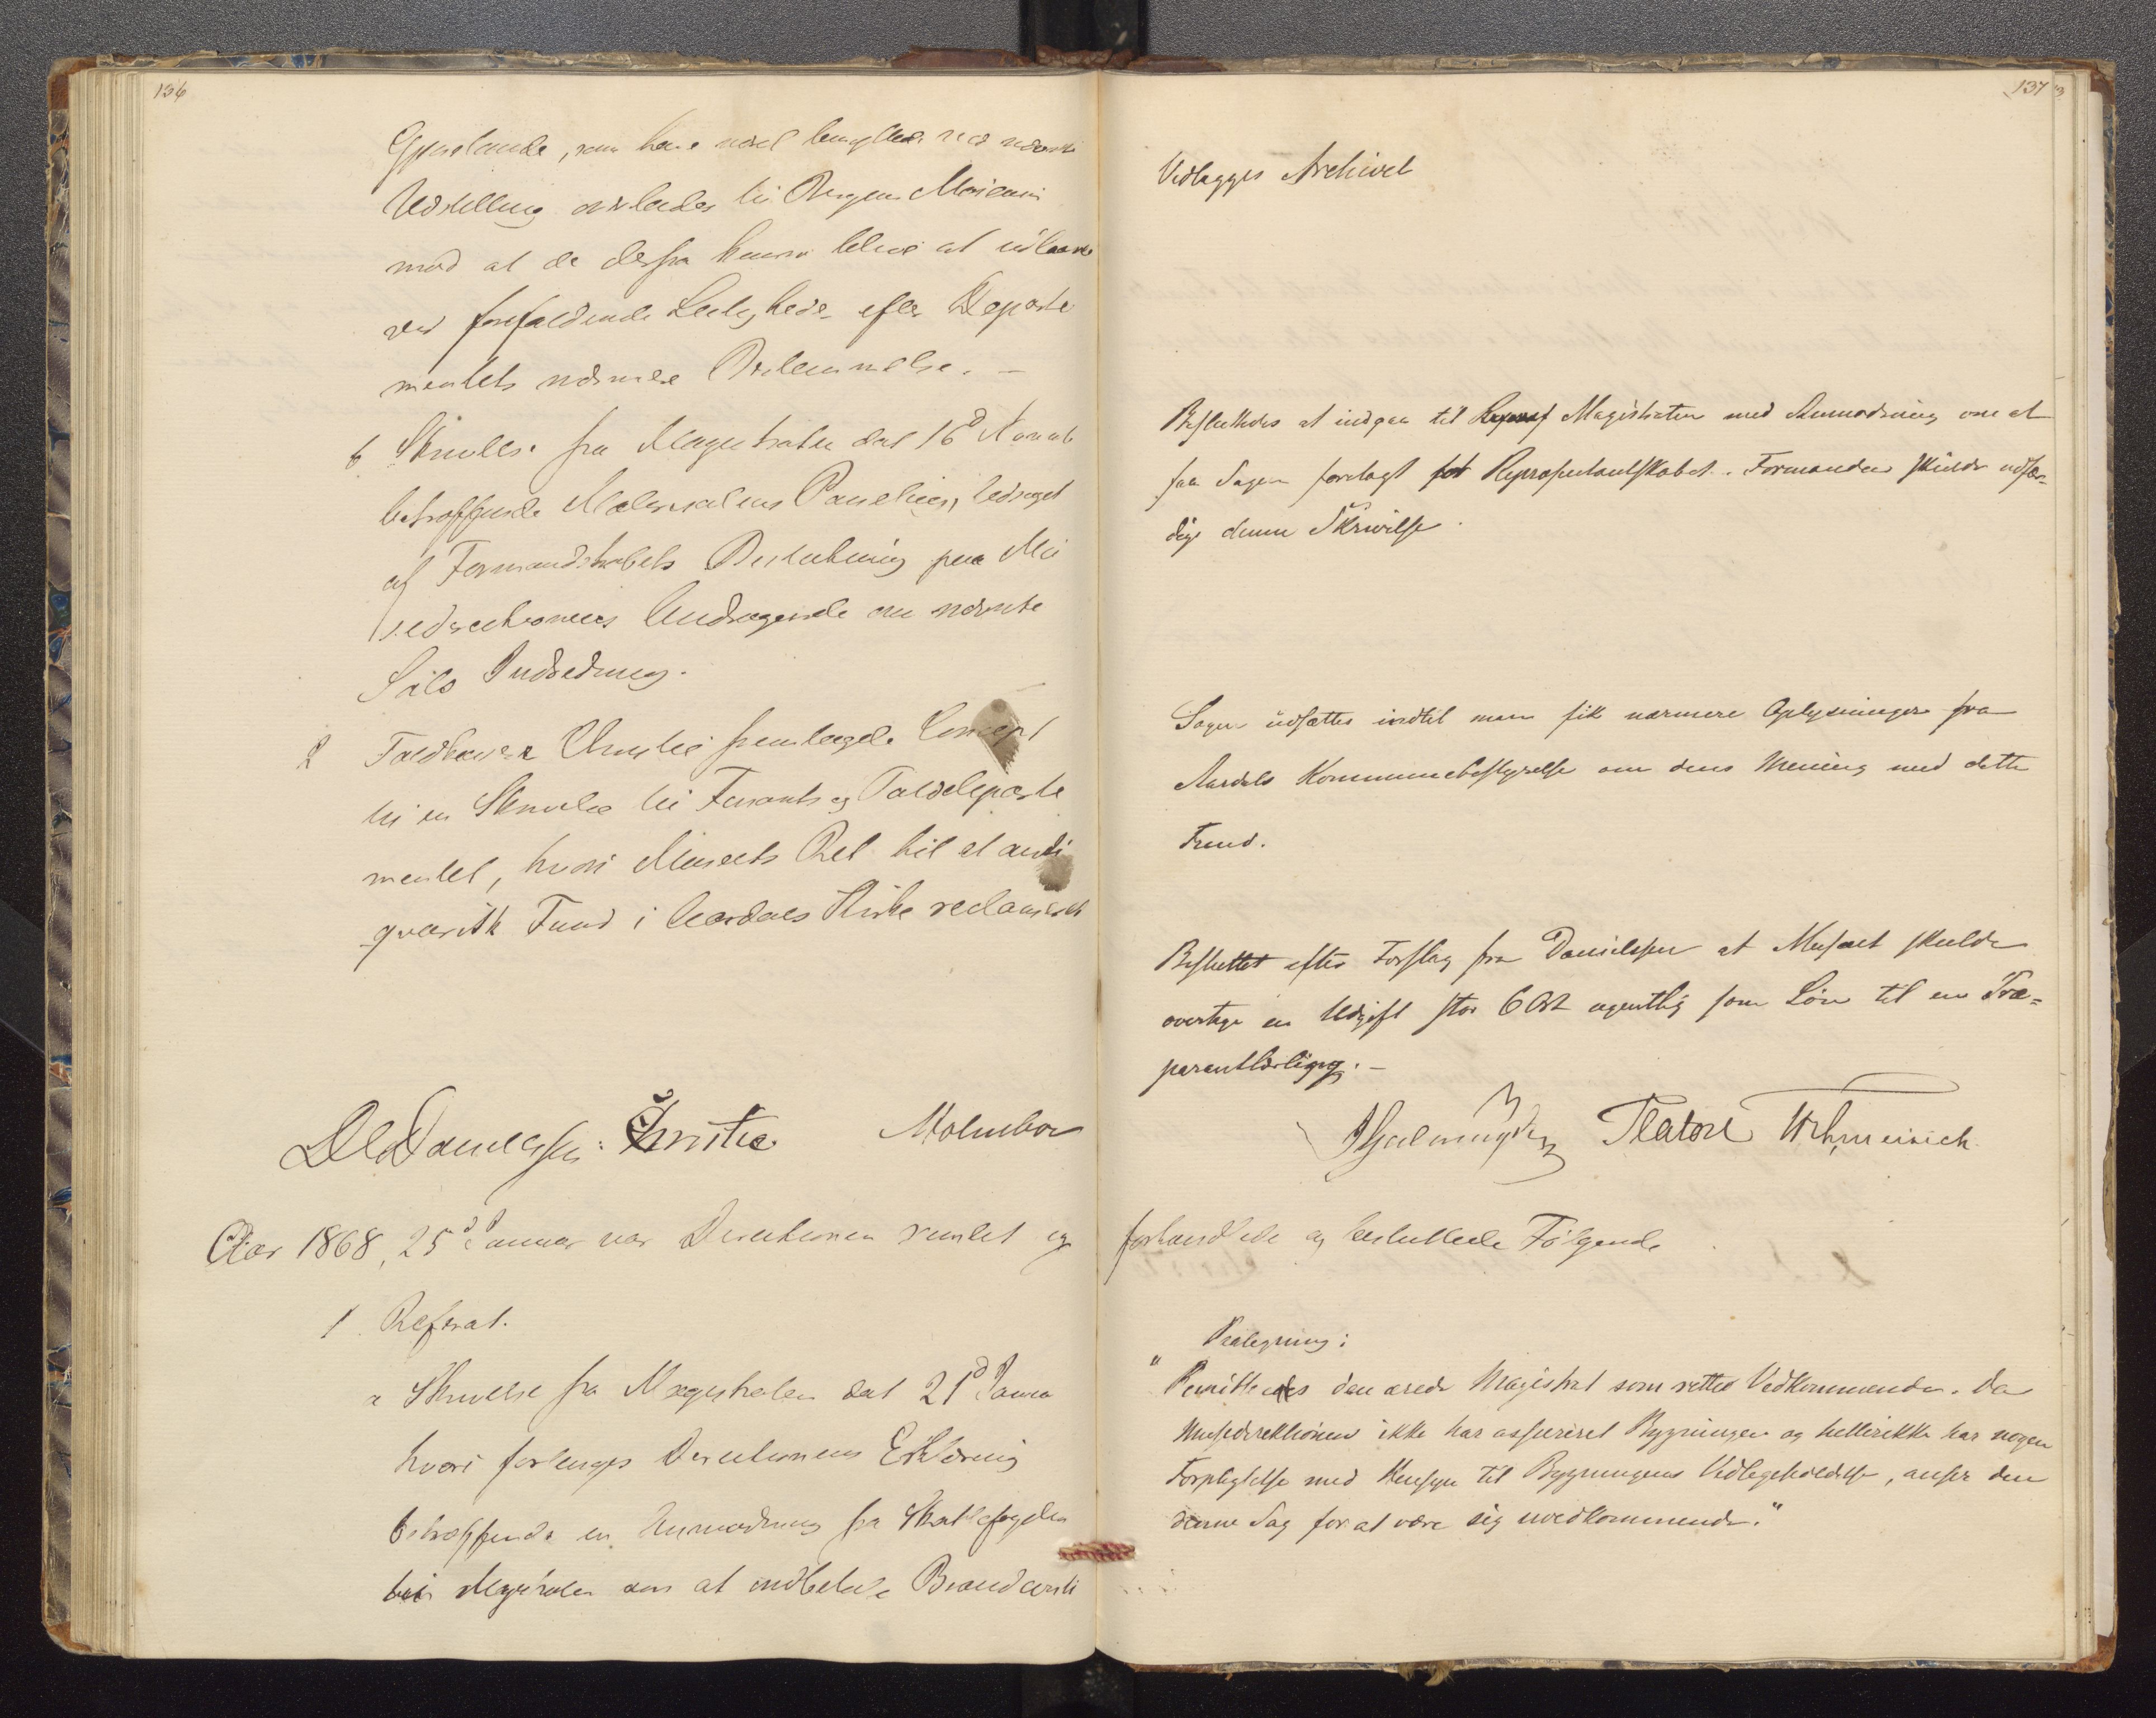 136
Gjenstande, som have været benyttede ved nævnte
Udstilling overlades til Bergens Museum
mod at de derfra kunne blive at udlaane
ved forefaldende Leilighed efter Departe
mentets nærmere Bestemmelse. –
b Skrivelse fra Magistraten dat 16d Novmb
betræffende Malersalens Paneling, ledsaget
af Formandskabets Beslutning paa Mu
sedirectionens Andragende om nævnte
Sals Indredning.
2 Toldkasserer Christie fremlagde Concept
til en Skrivelse til Finants og Tolddeparte
mentet, hvori Museets Ret til et anti
qvarisk Fund i Aardals Kirke reclameres
DCDanielssen. Christie Mohnboe
Aar 1868, 25d Januar var Directionen samlet og
1 Referat.
a Skrivelse fra Magistraten dat 21d Janua
hvori forlanges Directionens Erklæring
betræffende en Anmodning fra Skattefogden
til Magistraten om at indbetale Brandconti
137
Vedlægges Archivet
Besluttedes at indgaa til Magistraten med Anmodning om at
faa Sagen forelagt for Repræsentantskabet. Formanden skulde udfær-
dige denne Skrivelse.
Sagen udsættes indtil man fik nærmere Oplysninger fra
Aardals Kommunebestyrelse om dens Mening med dette
Fund.
Besluttet efter Forslag fra Danielssen at Museet skulde
overtage en Udgift stor 6 Ort ugentlig som Løn til en Præ=
parantlærling. –
Koren
forhandlede og besluttede Følgende
Paategning:
"Remitteredes den ærede Magistrat som rette Vedkommende. Da
Musedirektionen ikke har assureret Bygningen og hellerikke har nogen
Forpligtelse med Hensyn til Bygningens Vedligeholdelse, anser den
denne Sag for at være sig uvedkommende."